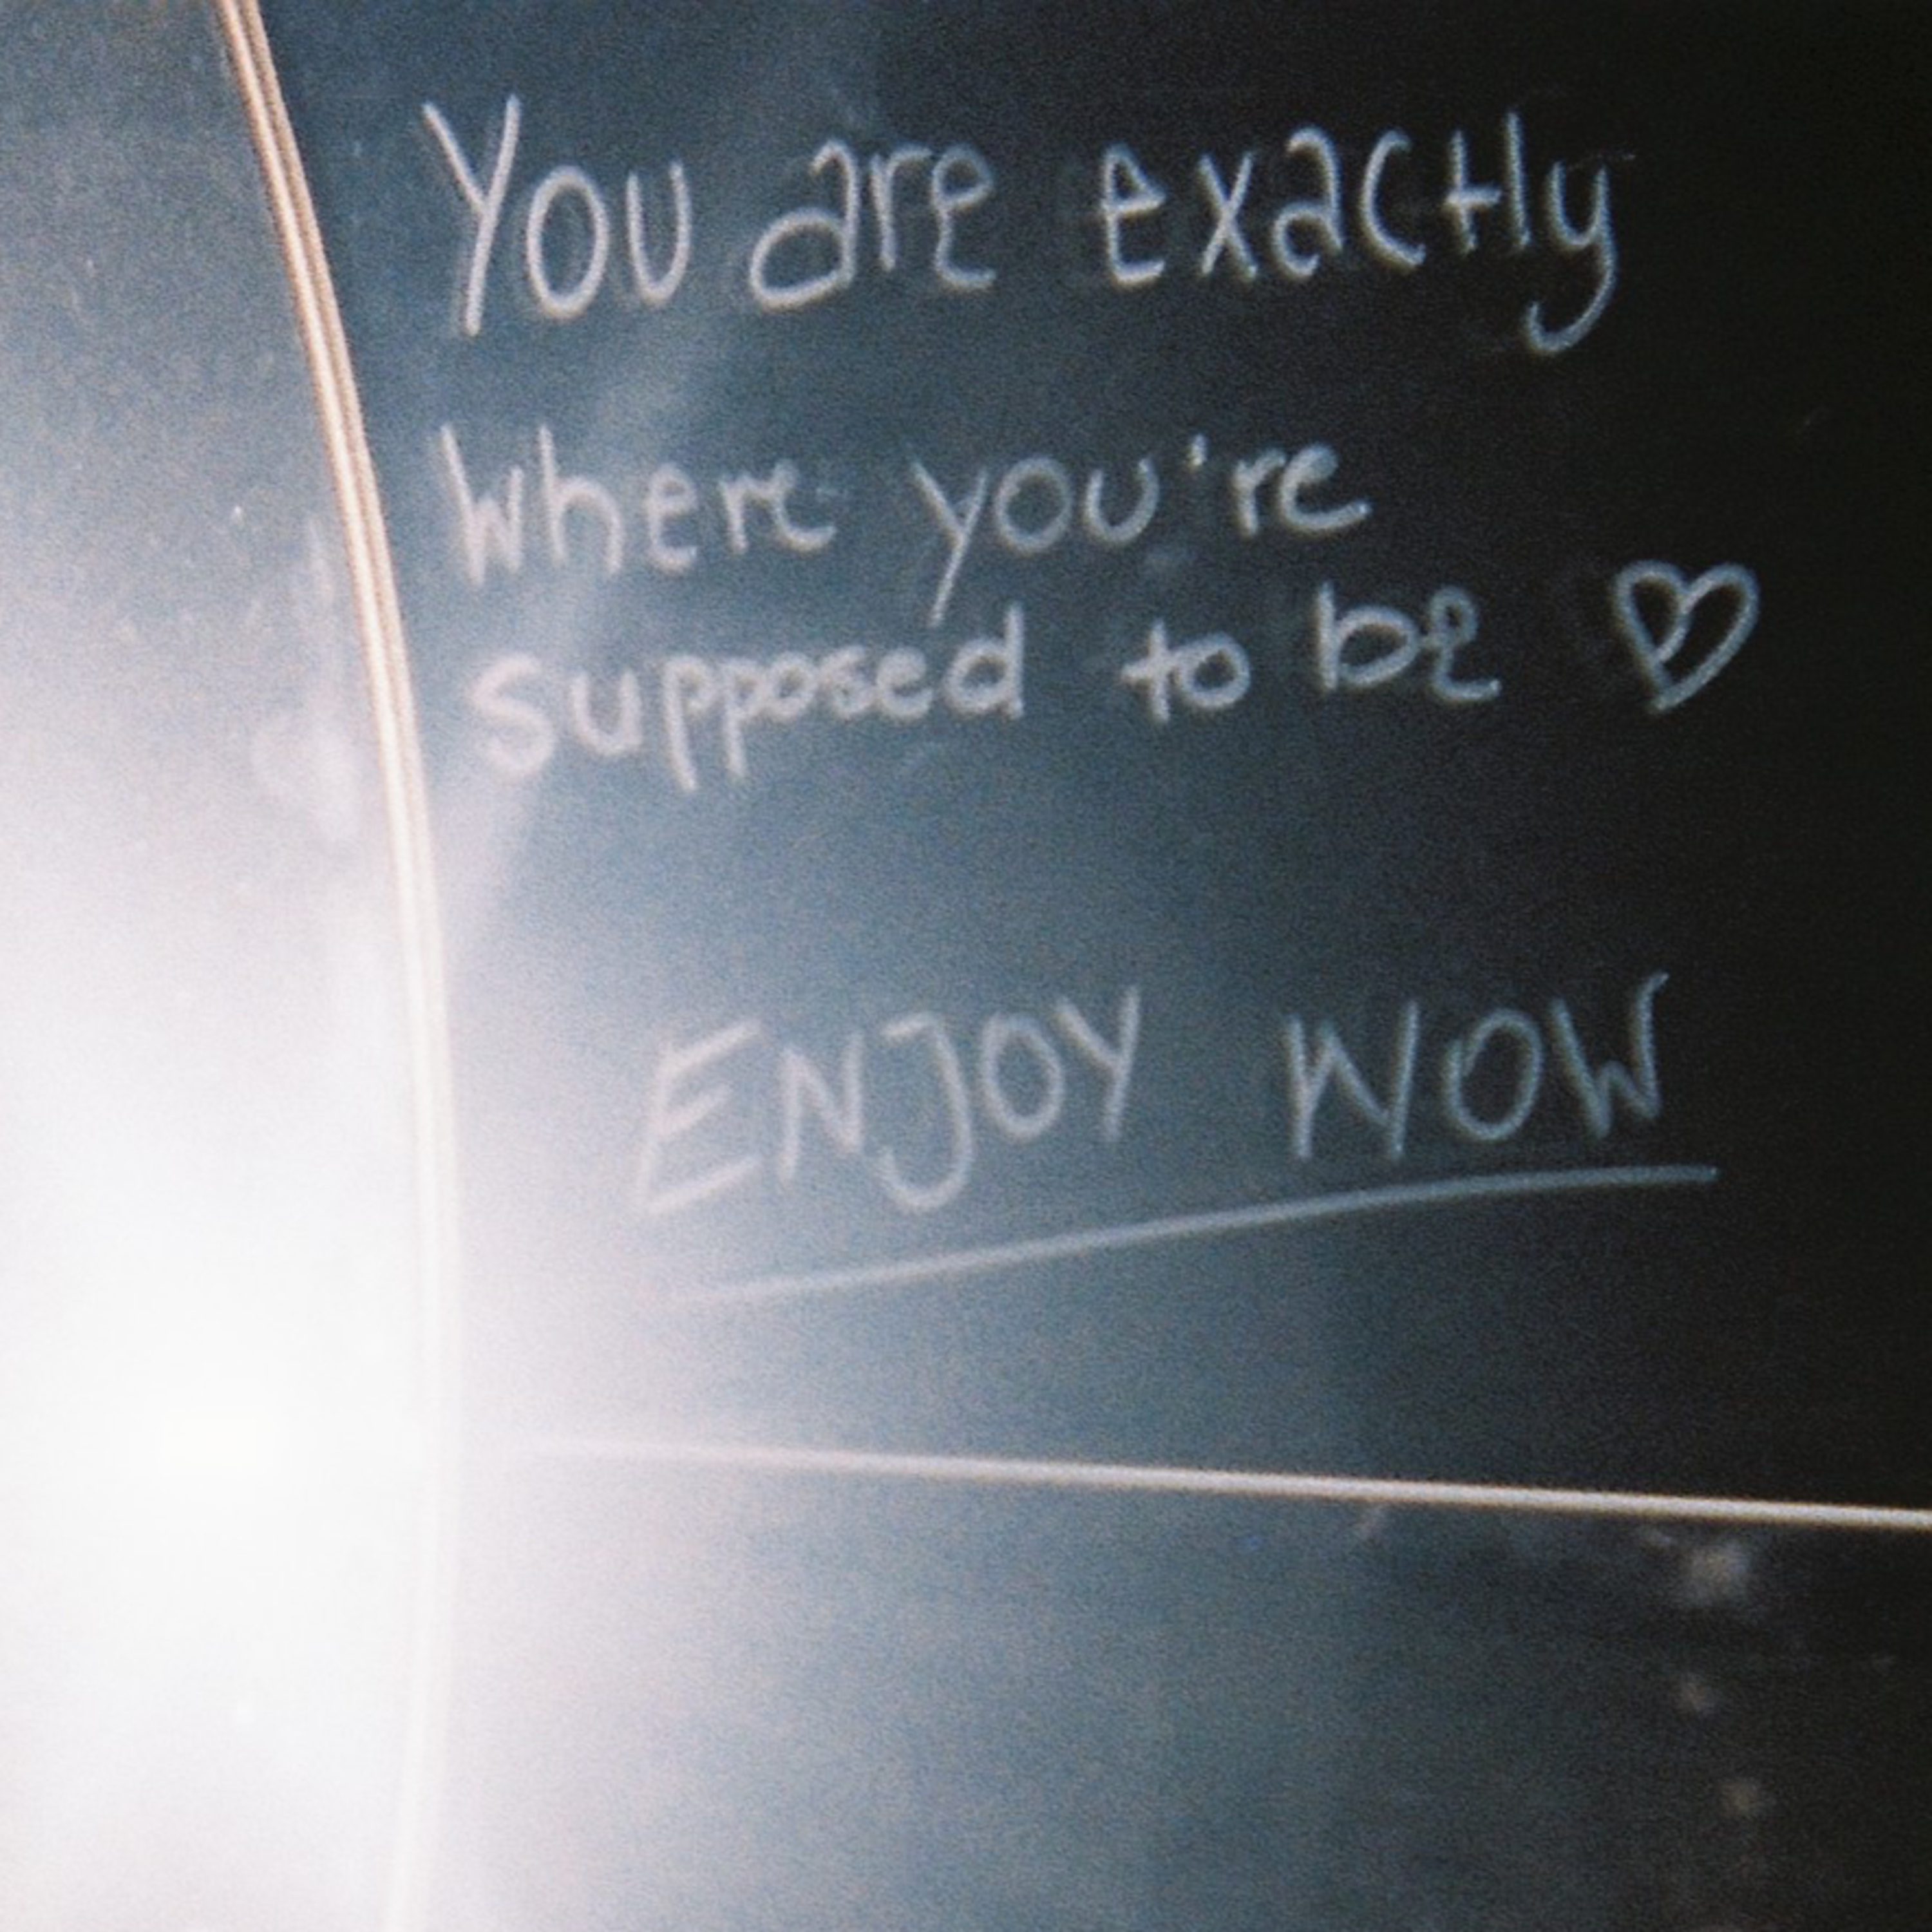 You are exactly
Where you're
supposed to be ♡
ENJOY NOW